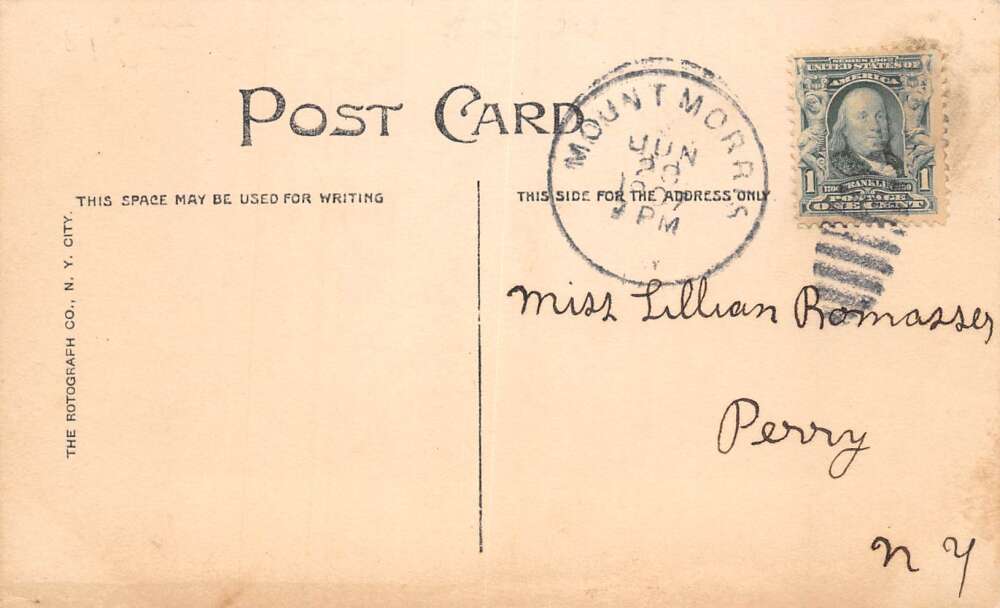 POST CARD
THIS SPACE MAY BE USED FOR WRITING
THE ROTOGRAPH CO., N. Y. CITY.
THIS SIDE FOR THE ADDRESS ONLY
MOUNT MORRIS
JUN
1907
PM
Y
SERIES 1902
UNITED STATES OF
AMERICA
1 FRANKLIN 1
POSTAGE
ONE CENT
Miss Lillian Romasser
Perry
N Y